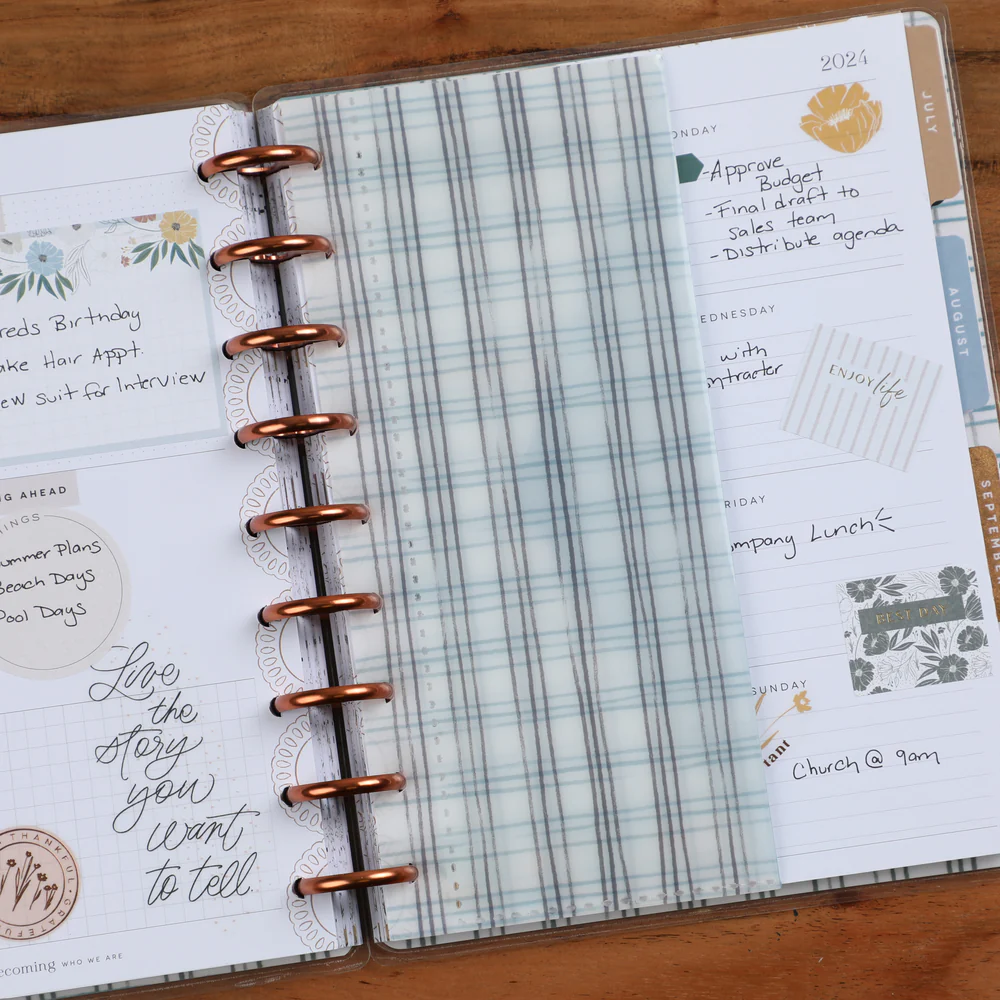 reds Birthday
ake Hair Appt.
ew suit for Interview
NG AHEAD
INGS
ummer Plans
Beach Days
Pool Days
Live
the
story
you
want
to tell.
THANKFUL • GRATEFUL
ecoming WHO WE ARE
2024
ONDAY
-Approve
Budget
-Final draft to
sales team
-Distribute agenda
EDNESDAY
with
ntractor
ENJOY life
RIDAY
ompany Lunch
BEST DAY
SUNDAY
tant
Church @ 9am
JULY
AUGUST
SEPTEMBE